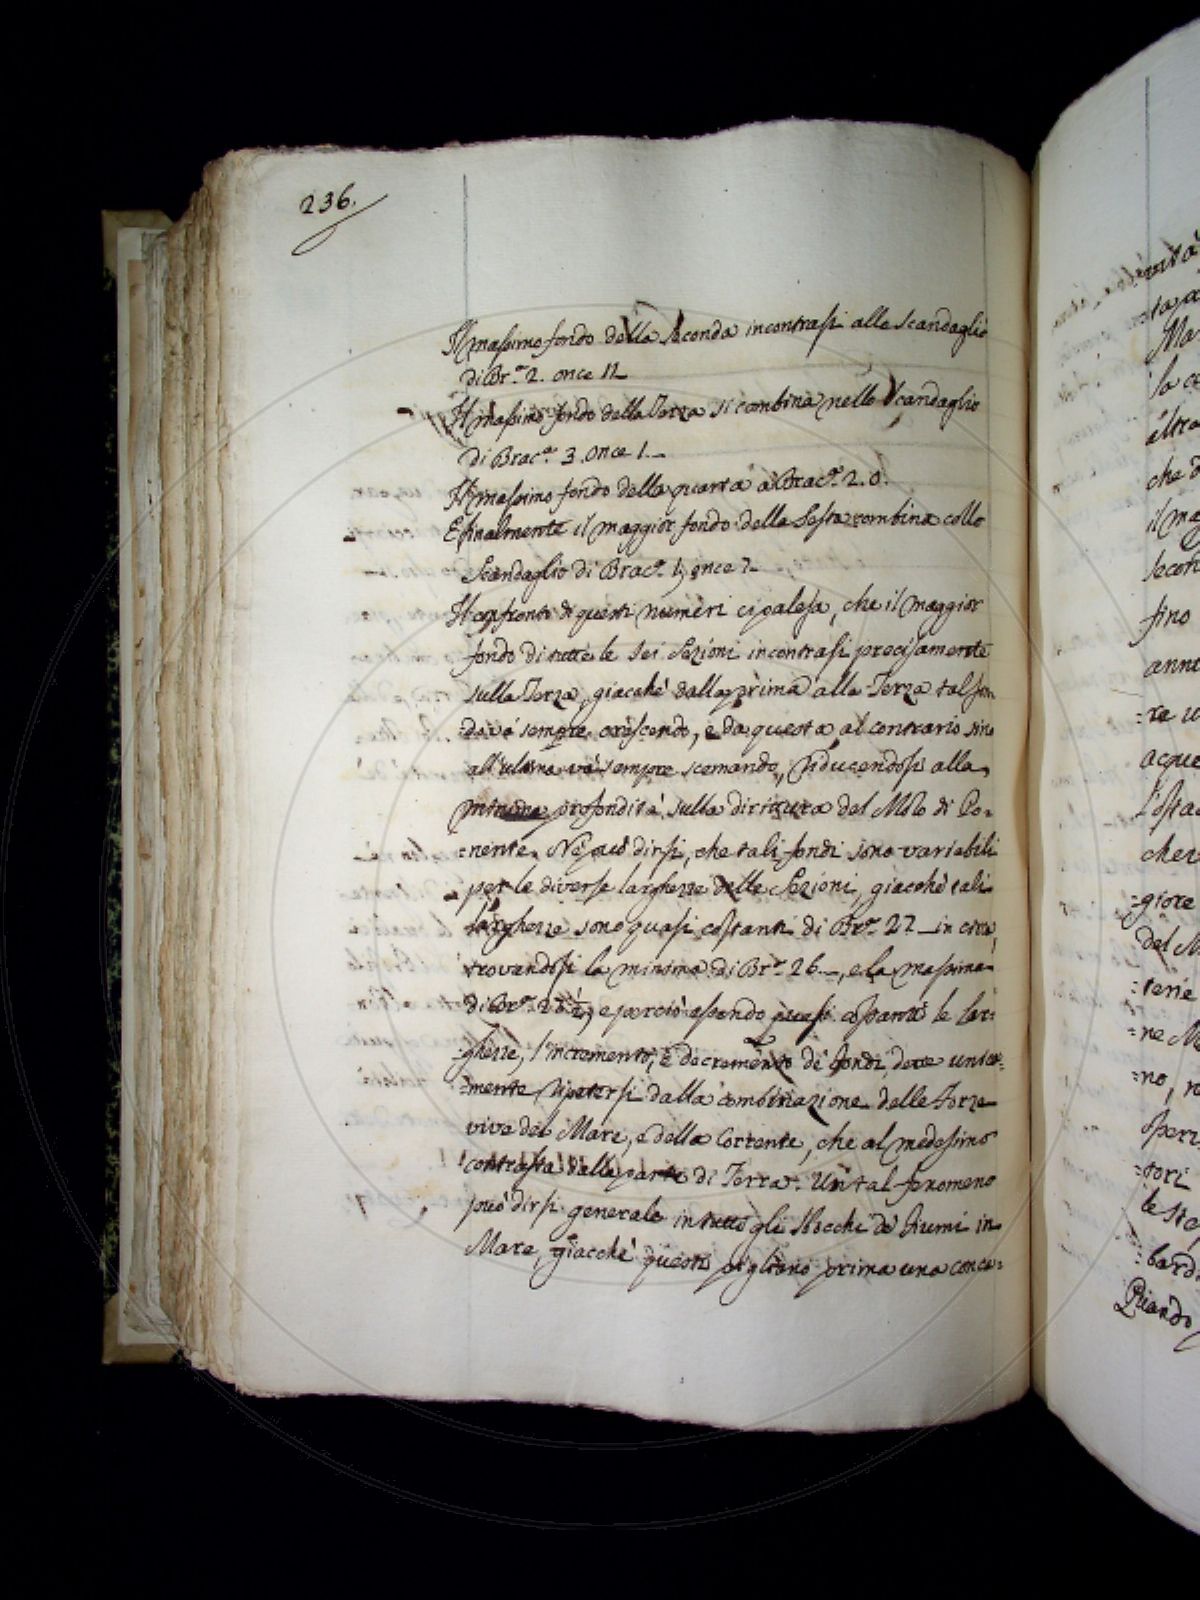 236.
Il massimo fondo della seconda incontrasi allo scandaglio
di Br.ª 2. once 11
Il massimo fondo della Terza si combina nello Scandaglio
di Brac.ª 3. once 1.
Il massimo fondo della quarta a Brac.ª 2. 0.
E finalmente il maggior fondo della Sesta combina collo
Scandaglio di Brac.ª 1, once 7
Il confronto di questi numeri ci palesa, che il maggior
fondo di tutte le sei Sezioni incontrasi precisamente
sulla Terza, giacchè dalla prima alla Terza tal fon
:do và sempre crescendo, e da questa al contrario sino
all'ultima và sempre scemando, riducendosi alla
minima profondità sulla dirittura del Molo di Po=
:nente. Nè può dirsi, che tali fondi sono variabili
per le diverse larghezze delle Sezioni, giacchè tali
larghezze sono quasi costanti di Br.ª 27 in circa,
trovandosi la minima di Br.ª 26, e la massima
di Br.ª e perciò essendo quasi costanti le lar:
:ghezze, l'incremento, e decremento de' fondi deve unica=
:mente ripetersi dalla combinazione delle Forze
vive del Mare, e della Corrente, che al medesimo
contrasta dalla parte di Terra. Un tal fenomeno
può dirsi generale in tutti gli Sbocchi de' Fiumi in
Mare, giacchè questi pigliano prima una conca=
vità
ta
Ma
la
altra
che
il mag
secon
fino
anni
:re
acque
l'osta
che
:giore
del M
:serie
=ne M
=no,
speri
:tori
le Sta
:bard
Quando